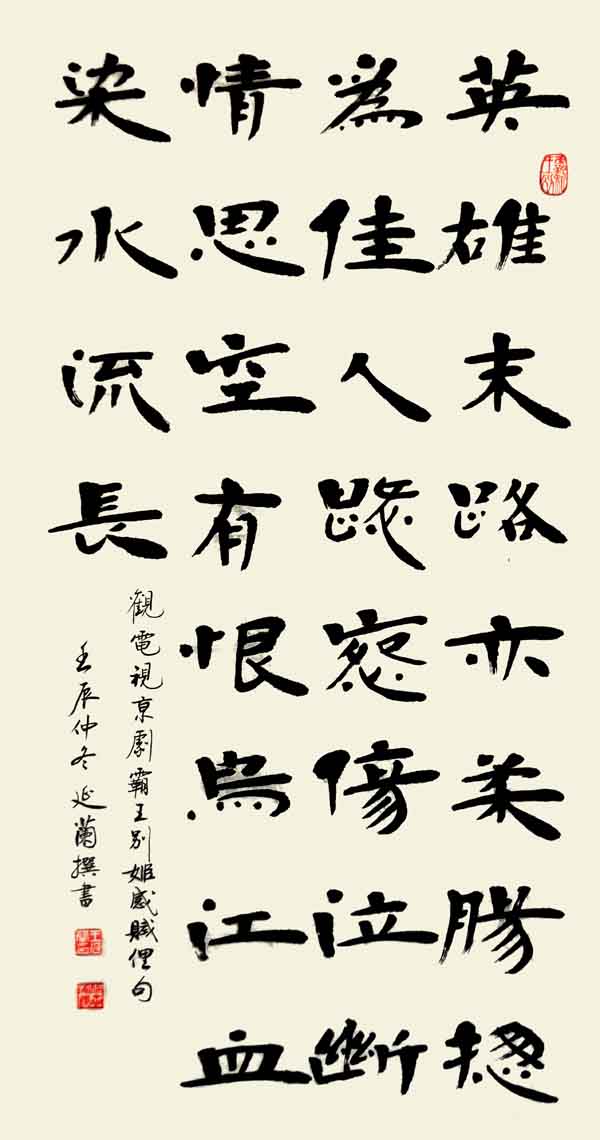 英雄末路亦柔腸摠
為佳人傍泣斷
情思空有恨烏江血
染水流長
觀電視京劇霸王別姬感賦俚句
壬辰仲冬延蘭撰書